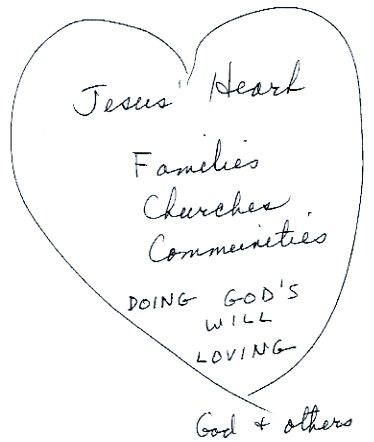 Jesus' Heart
Families
Churches
Communities
DOING GOD'S
WILL
LOVING
God + others